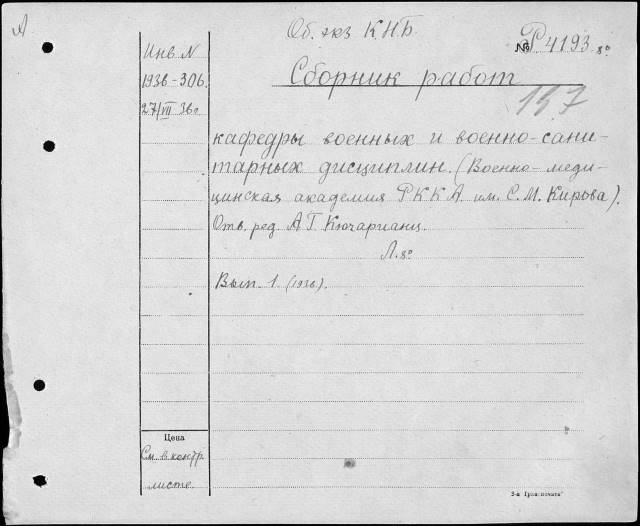 Об. экз К.Н.Б.
№ Р 4193 8°
Инв. N
1936-306.
27/VII 36 г
Сборник работ
157
кафедры военных и военно-сани-
тарных дисциплин. (Военно-меди-
цинская академия РККА им. С. М. Кирова).
Отв. ред. А Г. Кючарианц.
Л. 8°
Вып. 1 (1936).
Цена
См. в контр.
листе.